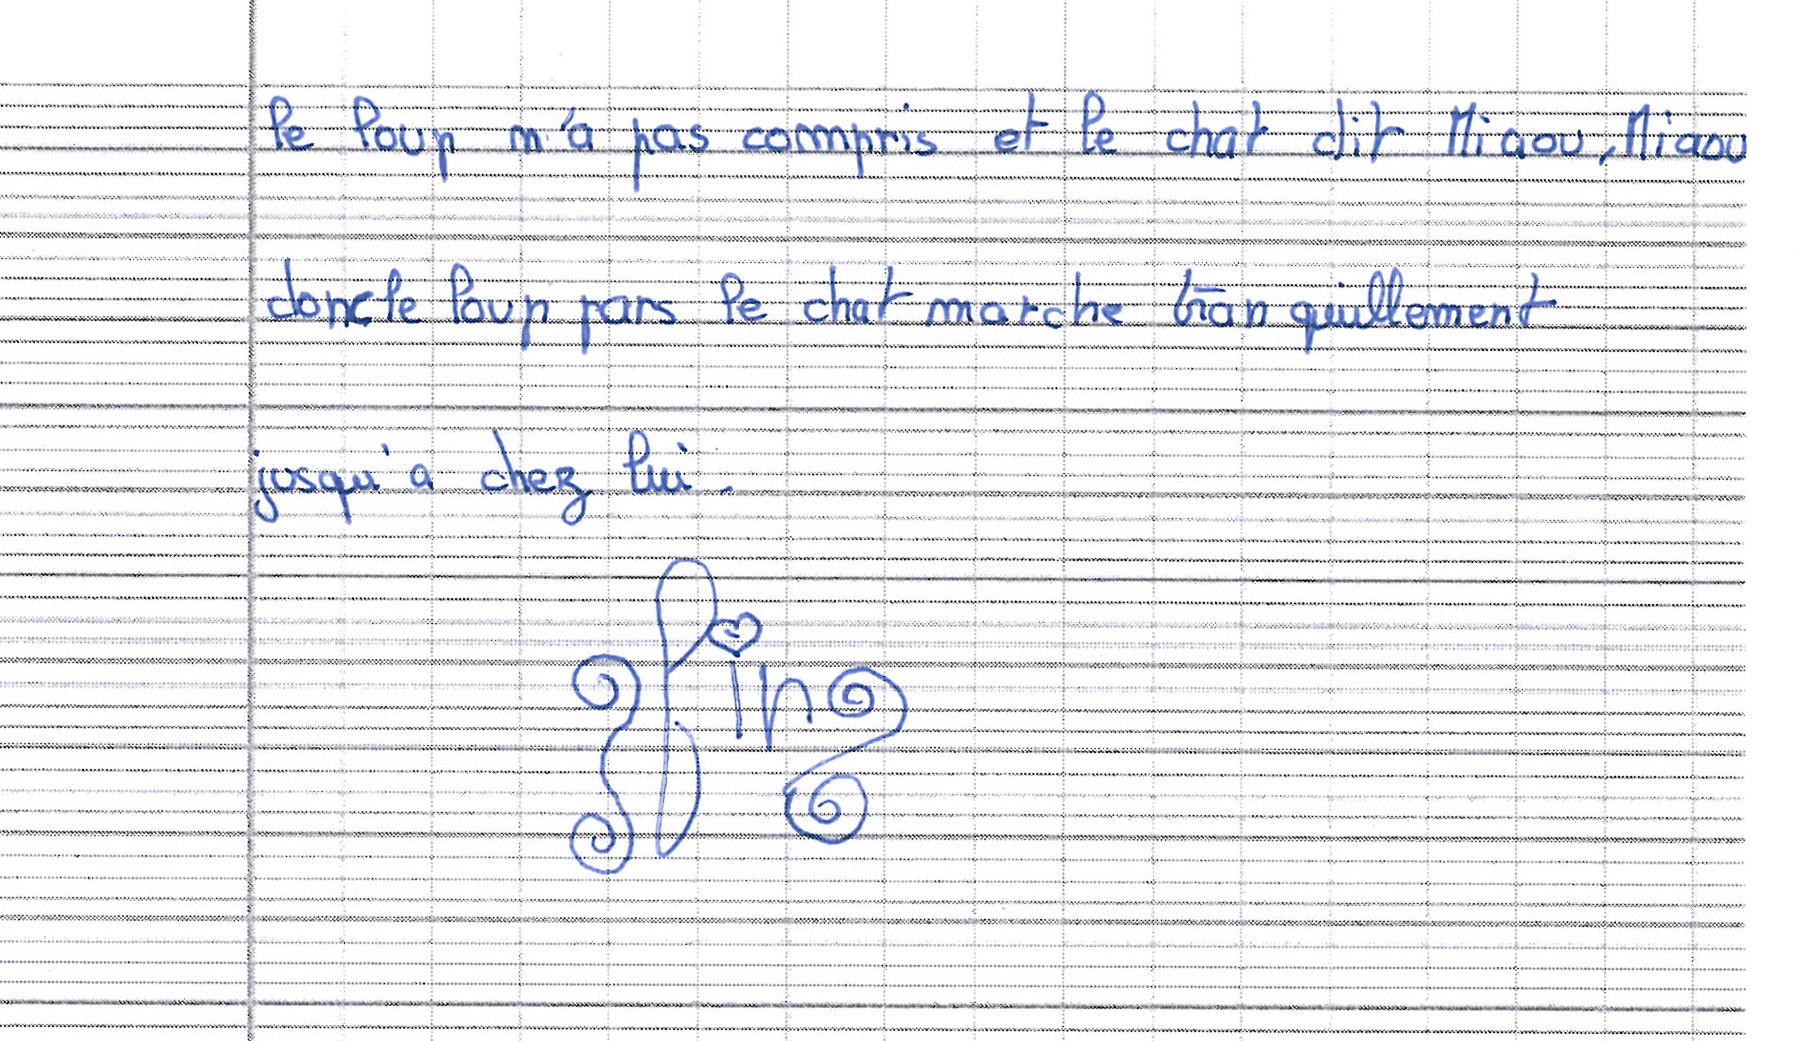 le loup n'a pas compris et le chat dit Miaou, Miaou
donc le loup pars le chat marche tranquillement
jusqu'a chez lui.
Fin